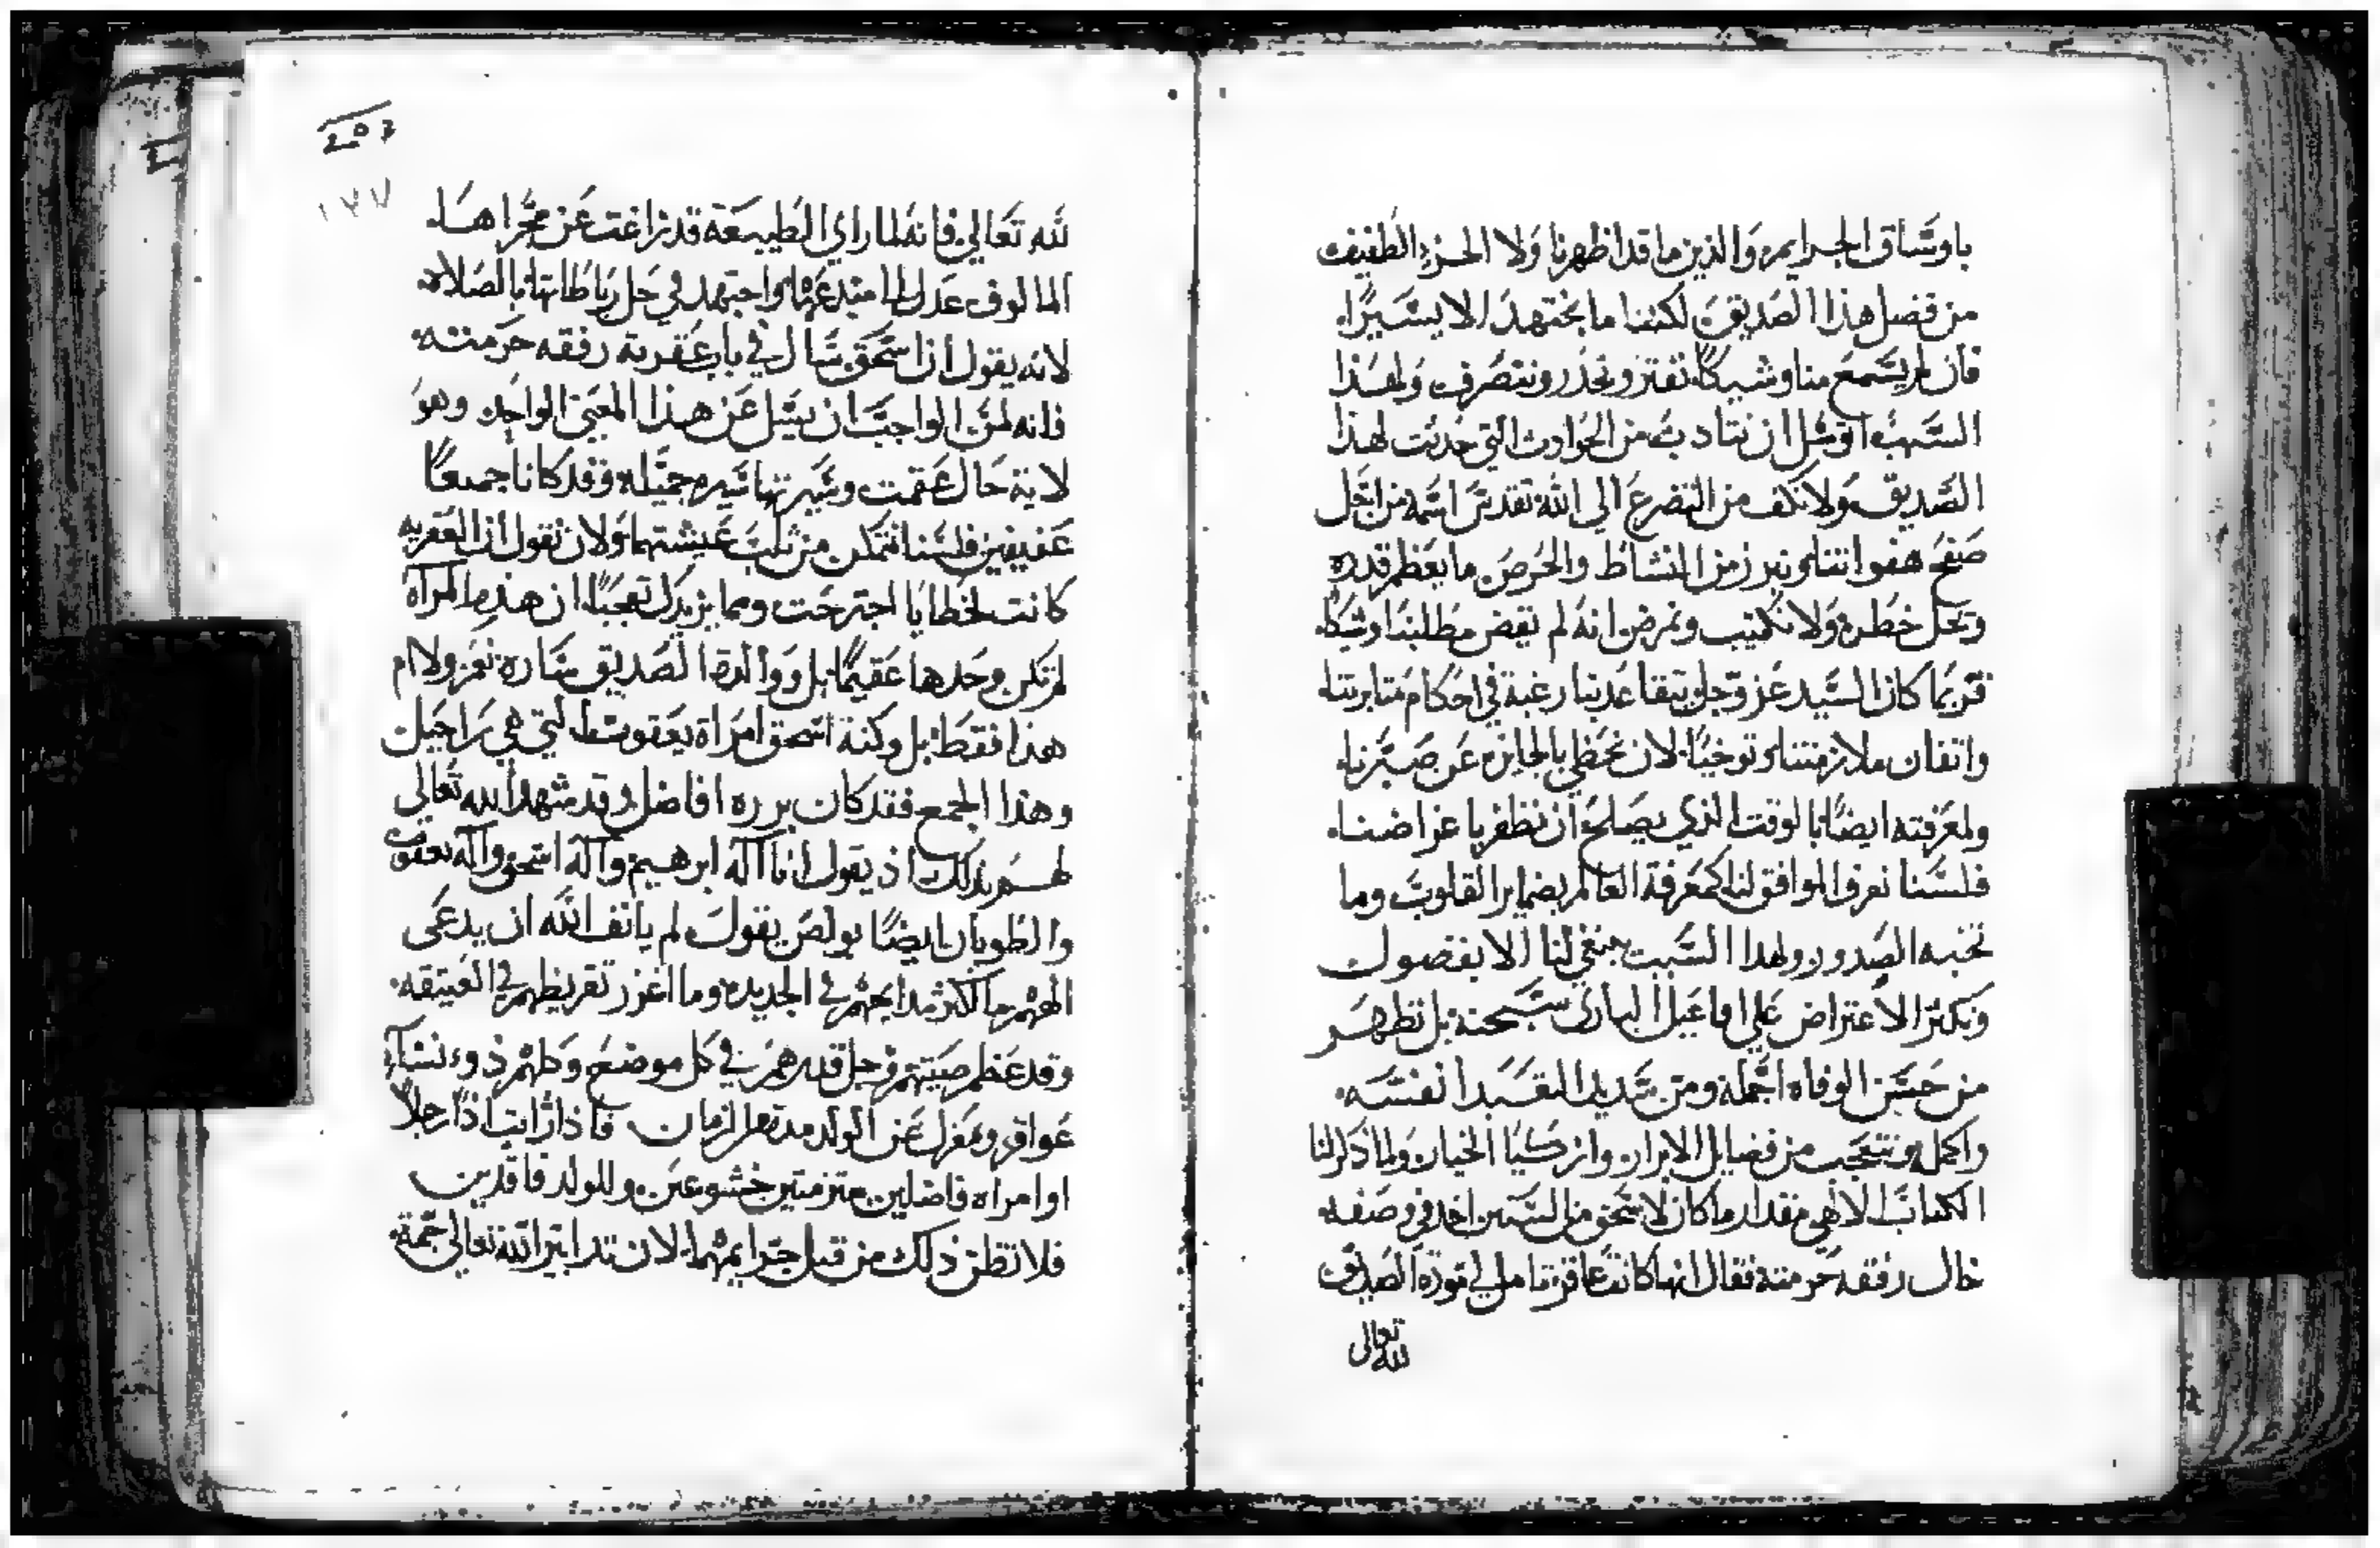 باوساق الجرايم والذين ما قد اظهرنا ولا الجزء الطفيف
من فضل هذا الصديق لكننا ما نجتهد الا يسيرًا
فان لم يسمع منا وشيكًا نفتر ونخدر وننصرف ولهذا
السبب اتوسل ان نتادب من الحوادث التي حدثت لهذا
الصديق ولا نكف من التضرع الي الله تقدس اسمه من اجل
صفح هفواتنا ونبرز من النشاط والحرص ما يعظم قدره
ويجل خطره ولا نكتيب ونمرض انه لم يقض مطلبنا وشيكًا
فربما كان السيد عز وجل يتقاعد بنا رغبة في احكام مثابرتنا
واتقان ملازمتنا وتوخيًا لان نحظي بالجايزه عن صبرنا
ولمعرفته ايضًا بالوقت الذي يصلح ان نظفر باغراضنا
فلسنا نعرف الموافق لنا كمعرفة العالم بضماير القلوب وما
تخبيه الصدور ولهذا السبب ينبغي لنا الا بفضول
ونكثر الاعتراض علي افاعيل الباري سبحنه بل نظهر
من حسن الوفاه اجمله ومن سديد انفسه
واكمله ونتعجب من فضايل الابرار وازكيا الخيار ولما ذكر لنا
الكتاب الالهي مقدار ما كان لاسحق من السنين اخذ في وصفه
حال رفقه حرمته فقال انها كانت عاقر تامل لي تودة الصديق
لله تعالى
207
١٧٧
لله تعالي فانه لما راي الطبيعة قد زاغت عن مجراها
المالوف عدل الي مبدعها واجتهد في حل رباطاتها بالصلاه
لانه يقول ان اسحق سال في باب عقرية رفقه حرمته
فانه لمن الواجب ان يسل عن هذا المعني الواحد وهو
لاية حال عقمت وسيرتها سيره جميله وقد كانا جميعًا
عفيفين فلسنا نتمكن من ثلب عيشتهما ولا ان نقول ان العقريه
كانت لخطايا اجترحت ومما يزيدك تعجبًا ان هذه المرآة
لم تكن وحدها عقيمًا بل ووالدة الصديق ساره نعم ولا ام
هذا فقط بل وكنة اسحق امراة يعقوب التي هي راحيل
وهذا الجمع فقد كان برره افاضل وقد شهد الله تعالي
لهم بذلك اذ يقول انا آله ابرهيم وآله اسحق وآله يعقوب
والطوبان ايضًا بولص يقول لم يانف الله ان يدعي
الههم ما اكثر مدايحهم في الجديده وما اغزر تقريظهم في العتيقه
وقد عظم صيتهم وجل قدرهم في كل موضع وكلهم ذووء نسآء
عواقر ومعزل عن الولد مدتها الزمان فاذا رايت اذًا رجلًا
او امراه فاضلين متزمتين خشوعين وللولد فاقدين
فلا تظن ذلك من قبل جرايمهما لان تدابير الله تعالي جمة